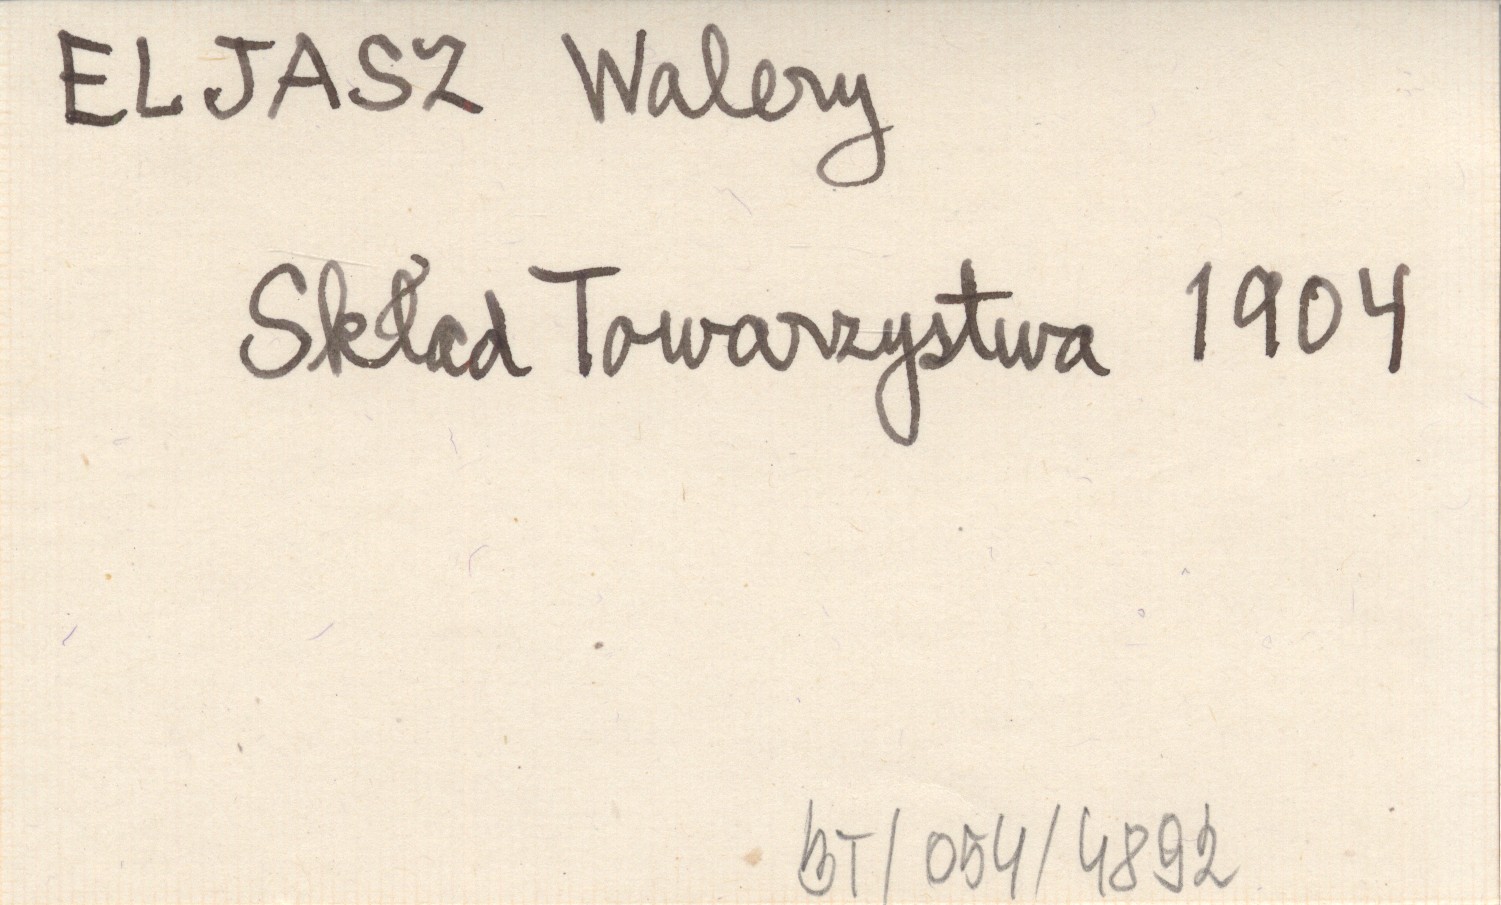 ELJASZ Walery
Skład Towarzystwa 1904
BT/054/4892